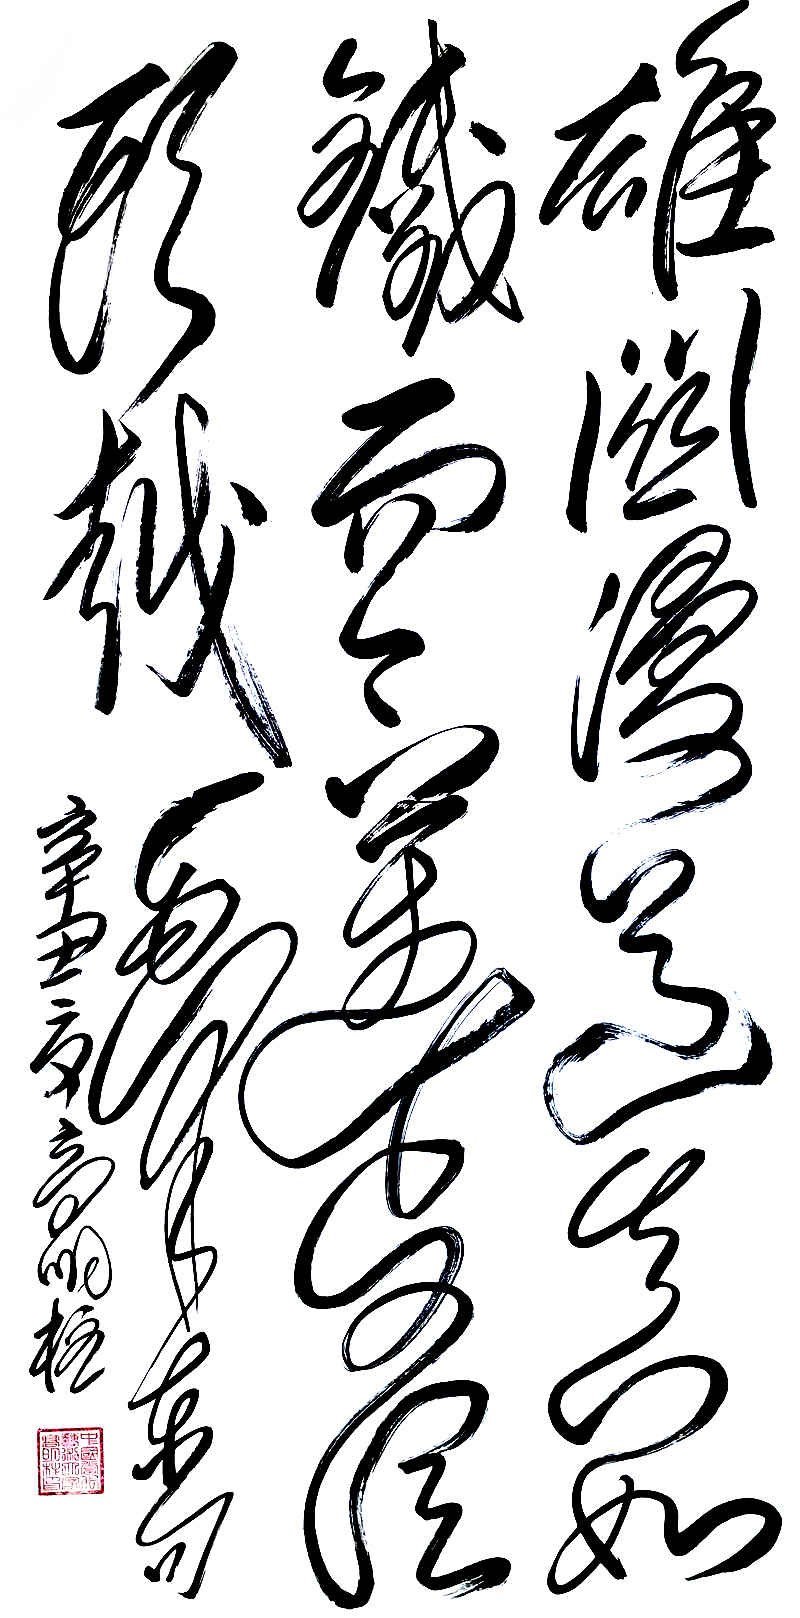 雄關漫道真如
鐵而今邁步從
頭越 毛澤東句
辛丑夏高明柱